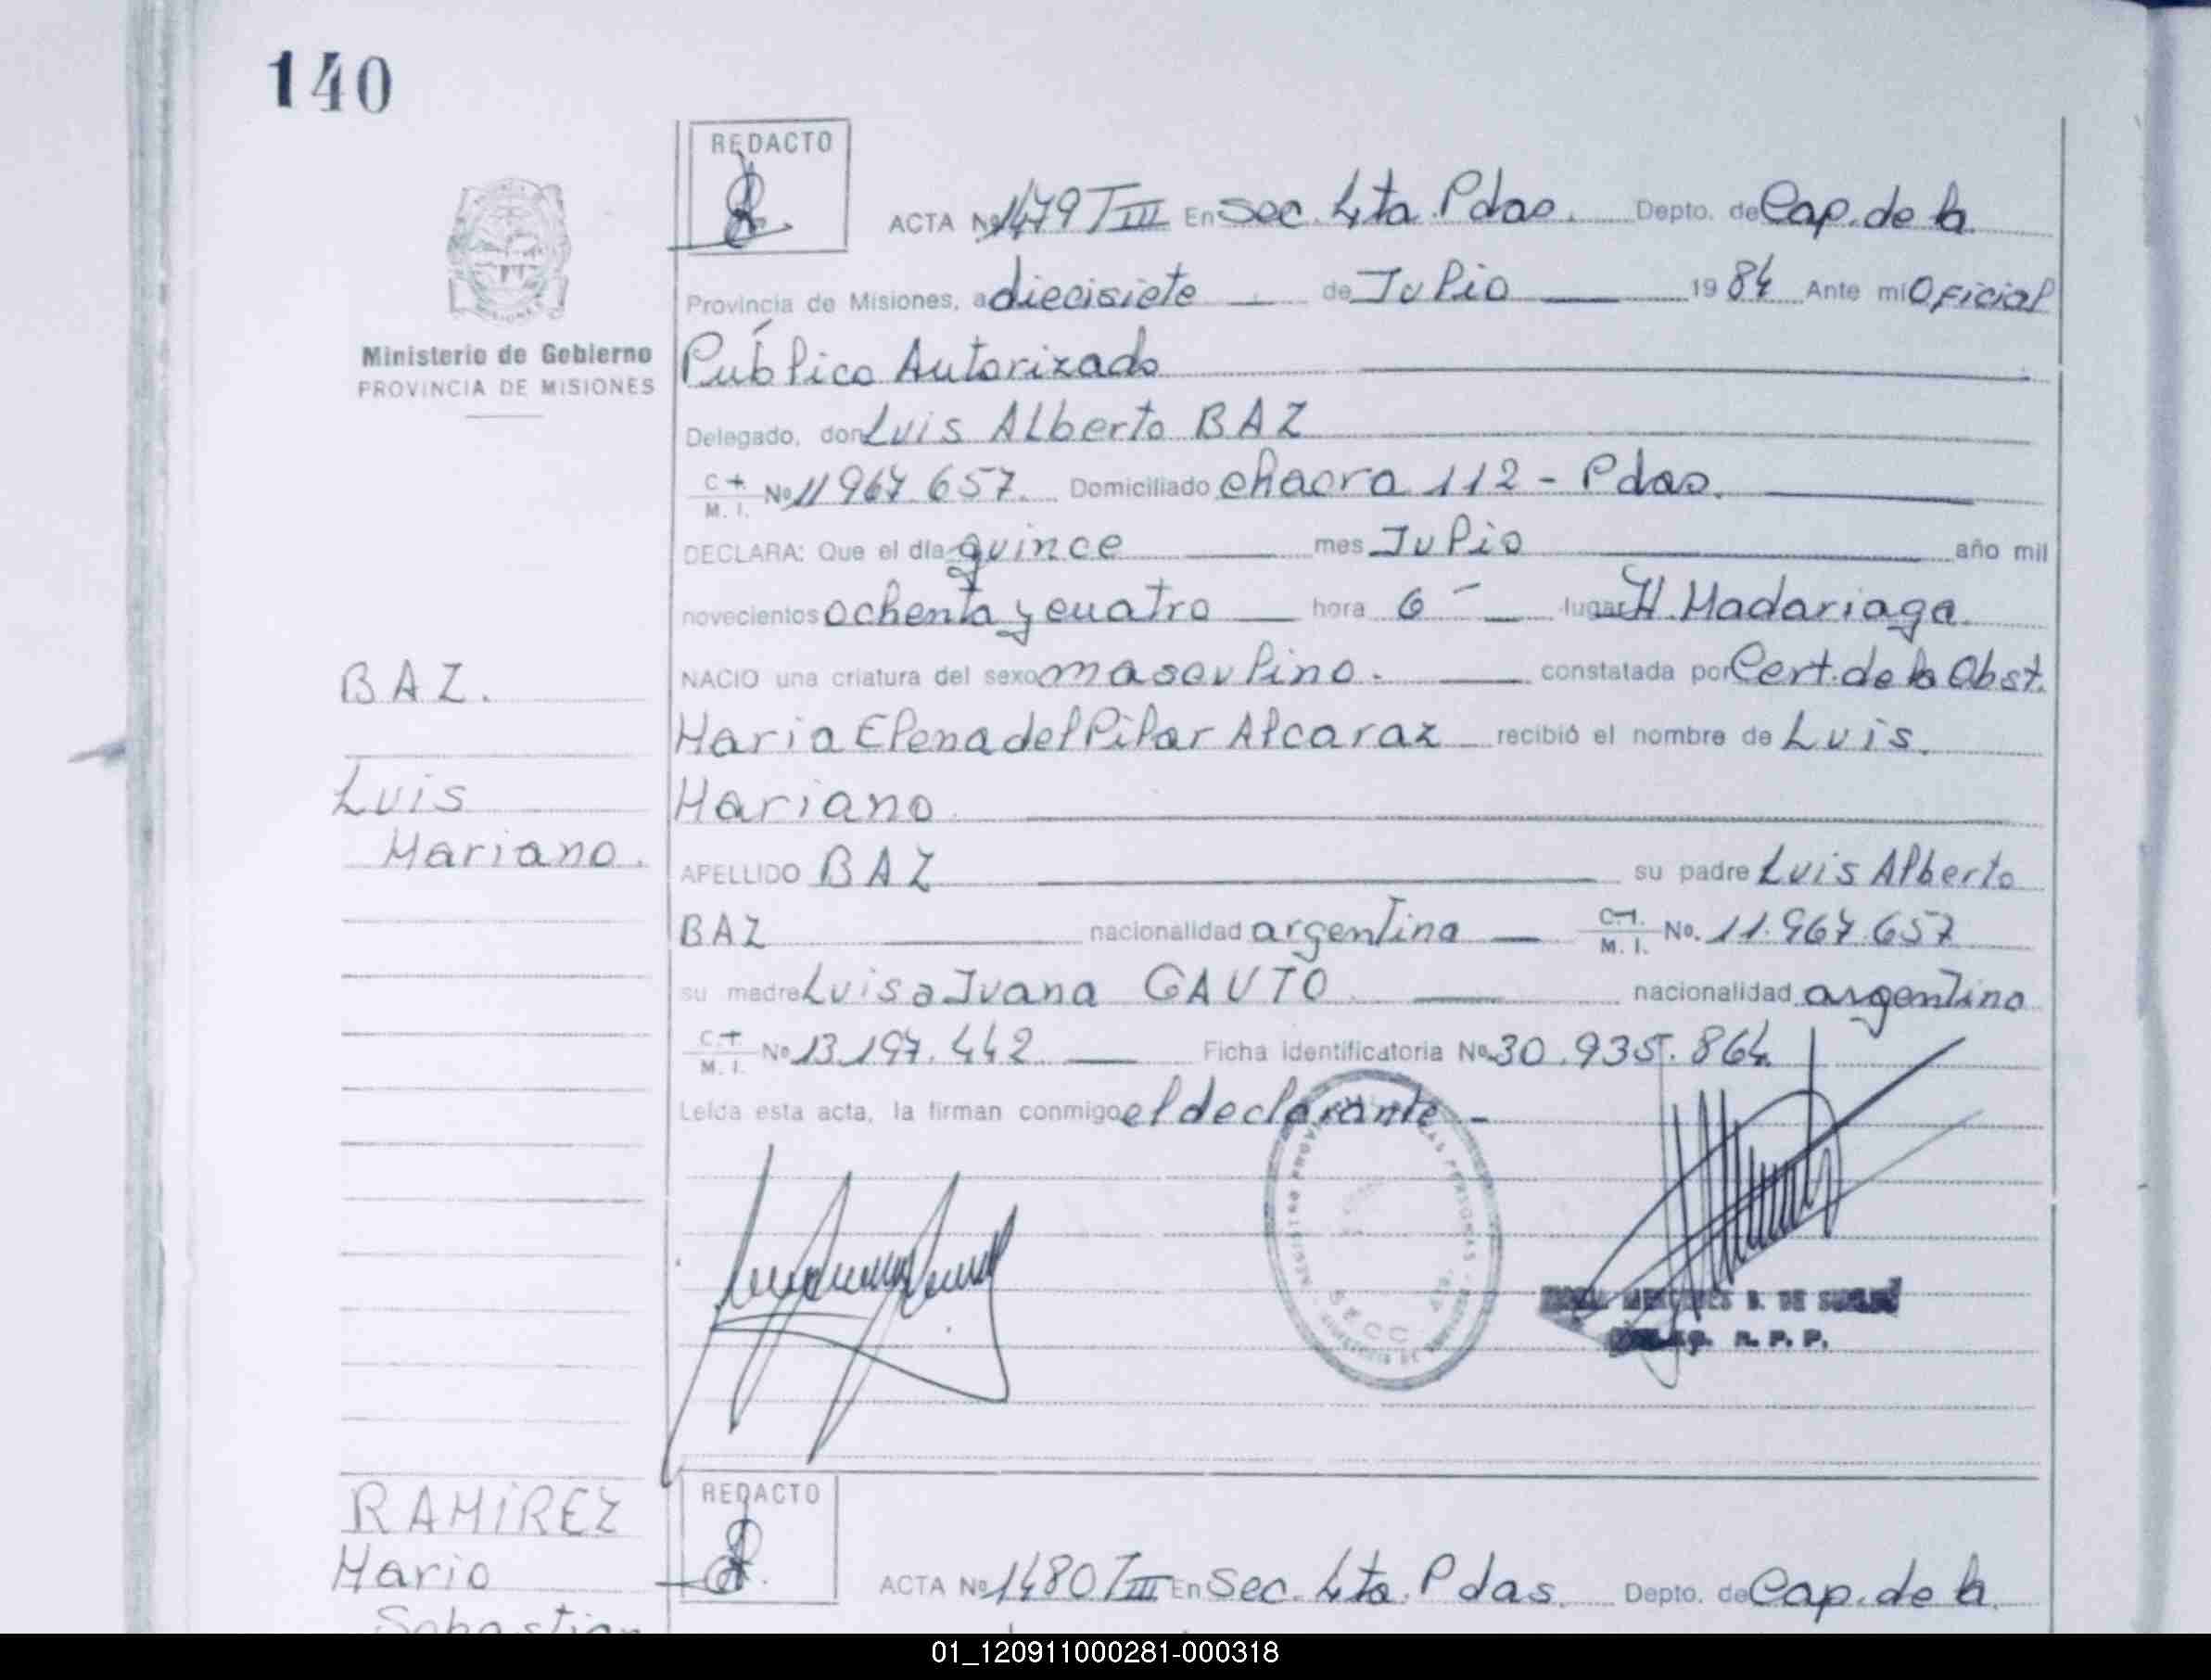 140
REDACTO
ACTA Nº 1479 T III En Sec. 4ta. Pdas. Depto. de Cap. de la
Provincia de Misiones, a diecisiete de Julio 1984 Ante mi Oficial
Público Autorizado
Ministerio de Gobierno
PROVINCIA DE MISIONES
Delegado, don Luis Alberto BAZ
C. I.
M. I. Nº 11967.657. Domiciliado chacra 112 - Pdas.
DECLARA: Que el día quince mes Julio año mil
novecientos ochenta y cuatro hora 6 lugar H. Madariaga.
BAZ.
NACIO una criatura del sexo masculino. constatada por Cert. de la Obst.
Maria Elena del Pilar Alcaraz recibió el nombre de Luis.
Luis
Mariano.
Mariano.
APELLIDO BAZ su padre Luis Alberto
BAZ nacionalidad argentina C. I.
M. I. No. 11.967.657
su madre Luisa Juana GAUTO nacionalidad argentina
C. I.
M. I. Nº 13.197.442 Ficha identificatoria No. 30.935.864
Leída esta acta, la firman conmigo el declarante -
SECC
B. DE
R. P. P.
RAMIREZ
Mario
Sebastian
REDACTO
ACTA Nº 1480 T III En Sec. 4ta. Pdas. Depto. de Cap. de la
01_120911000281-000318